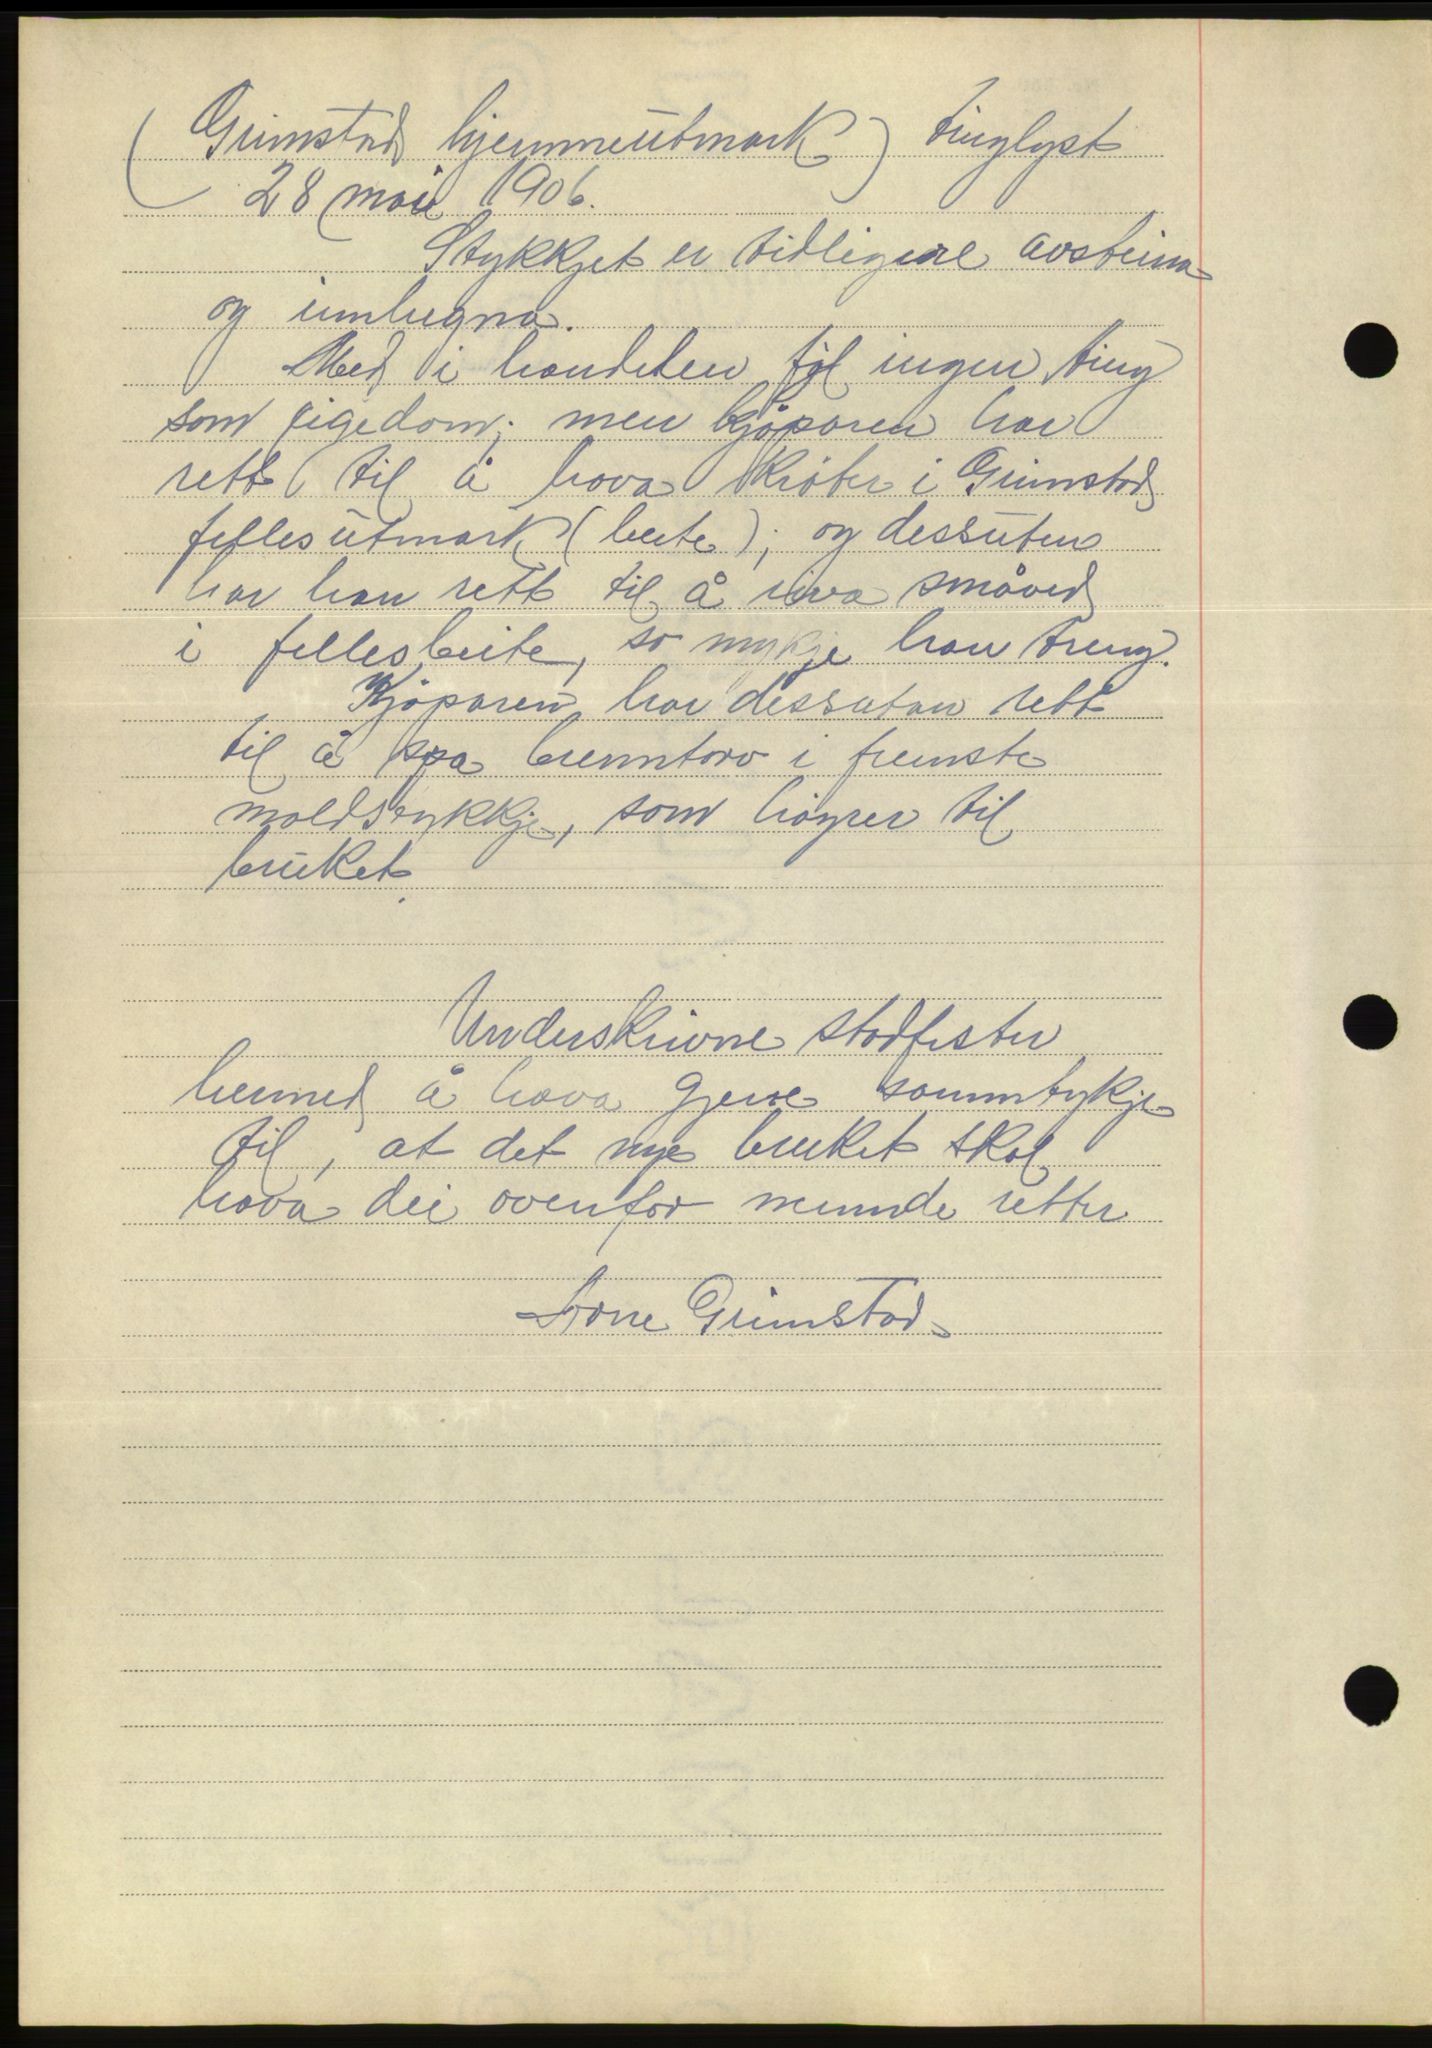 (Grimstad hjemmeutmark) tinglyst
28 mai 1906.
Stykkjet er tidligere avsteina
og innhegna.
Med i handelen fyl ingen ting
som eigedom; men kjøparen har
rett til å hava krøter i Grimstad
fellesutmark (beite); og dessuten
har han rett til å riva småved
i fellesbeite, so mykje han treng.
Kjøparen har dessutan rett
til å spa brenntorv i fremste
moldstykkje, som høyrer til
bruket.
Underskrivne stadfester
hermed å hava gjeve samntykje
til, at det nye bruket skal
hava dei ovenfor nemnde retter
Arne Grimstad